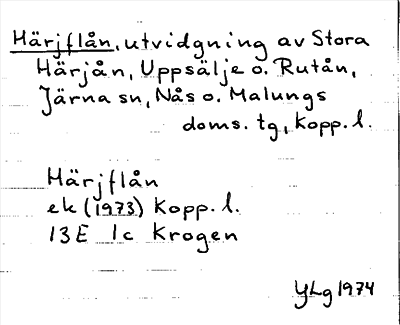 Härjflån, utvidgning av Stora
Härjån, Uppsälje o. Rutån,
Järna sn, Nås o. Malungs
doms. tg, Kopp. l.
Härjflån
ek (1973) Kopp. l.
13E 1c Krogen
YLg 1974